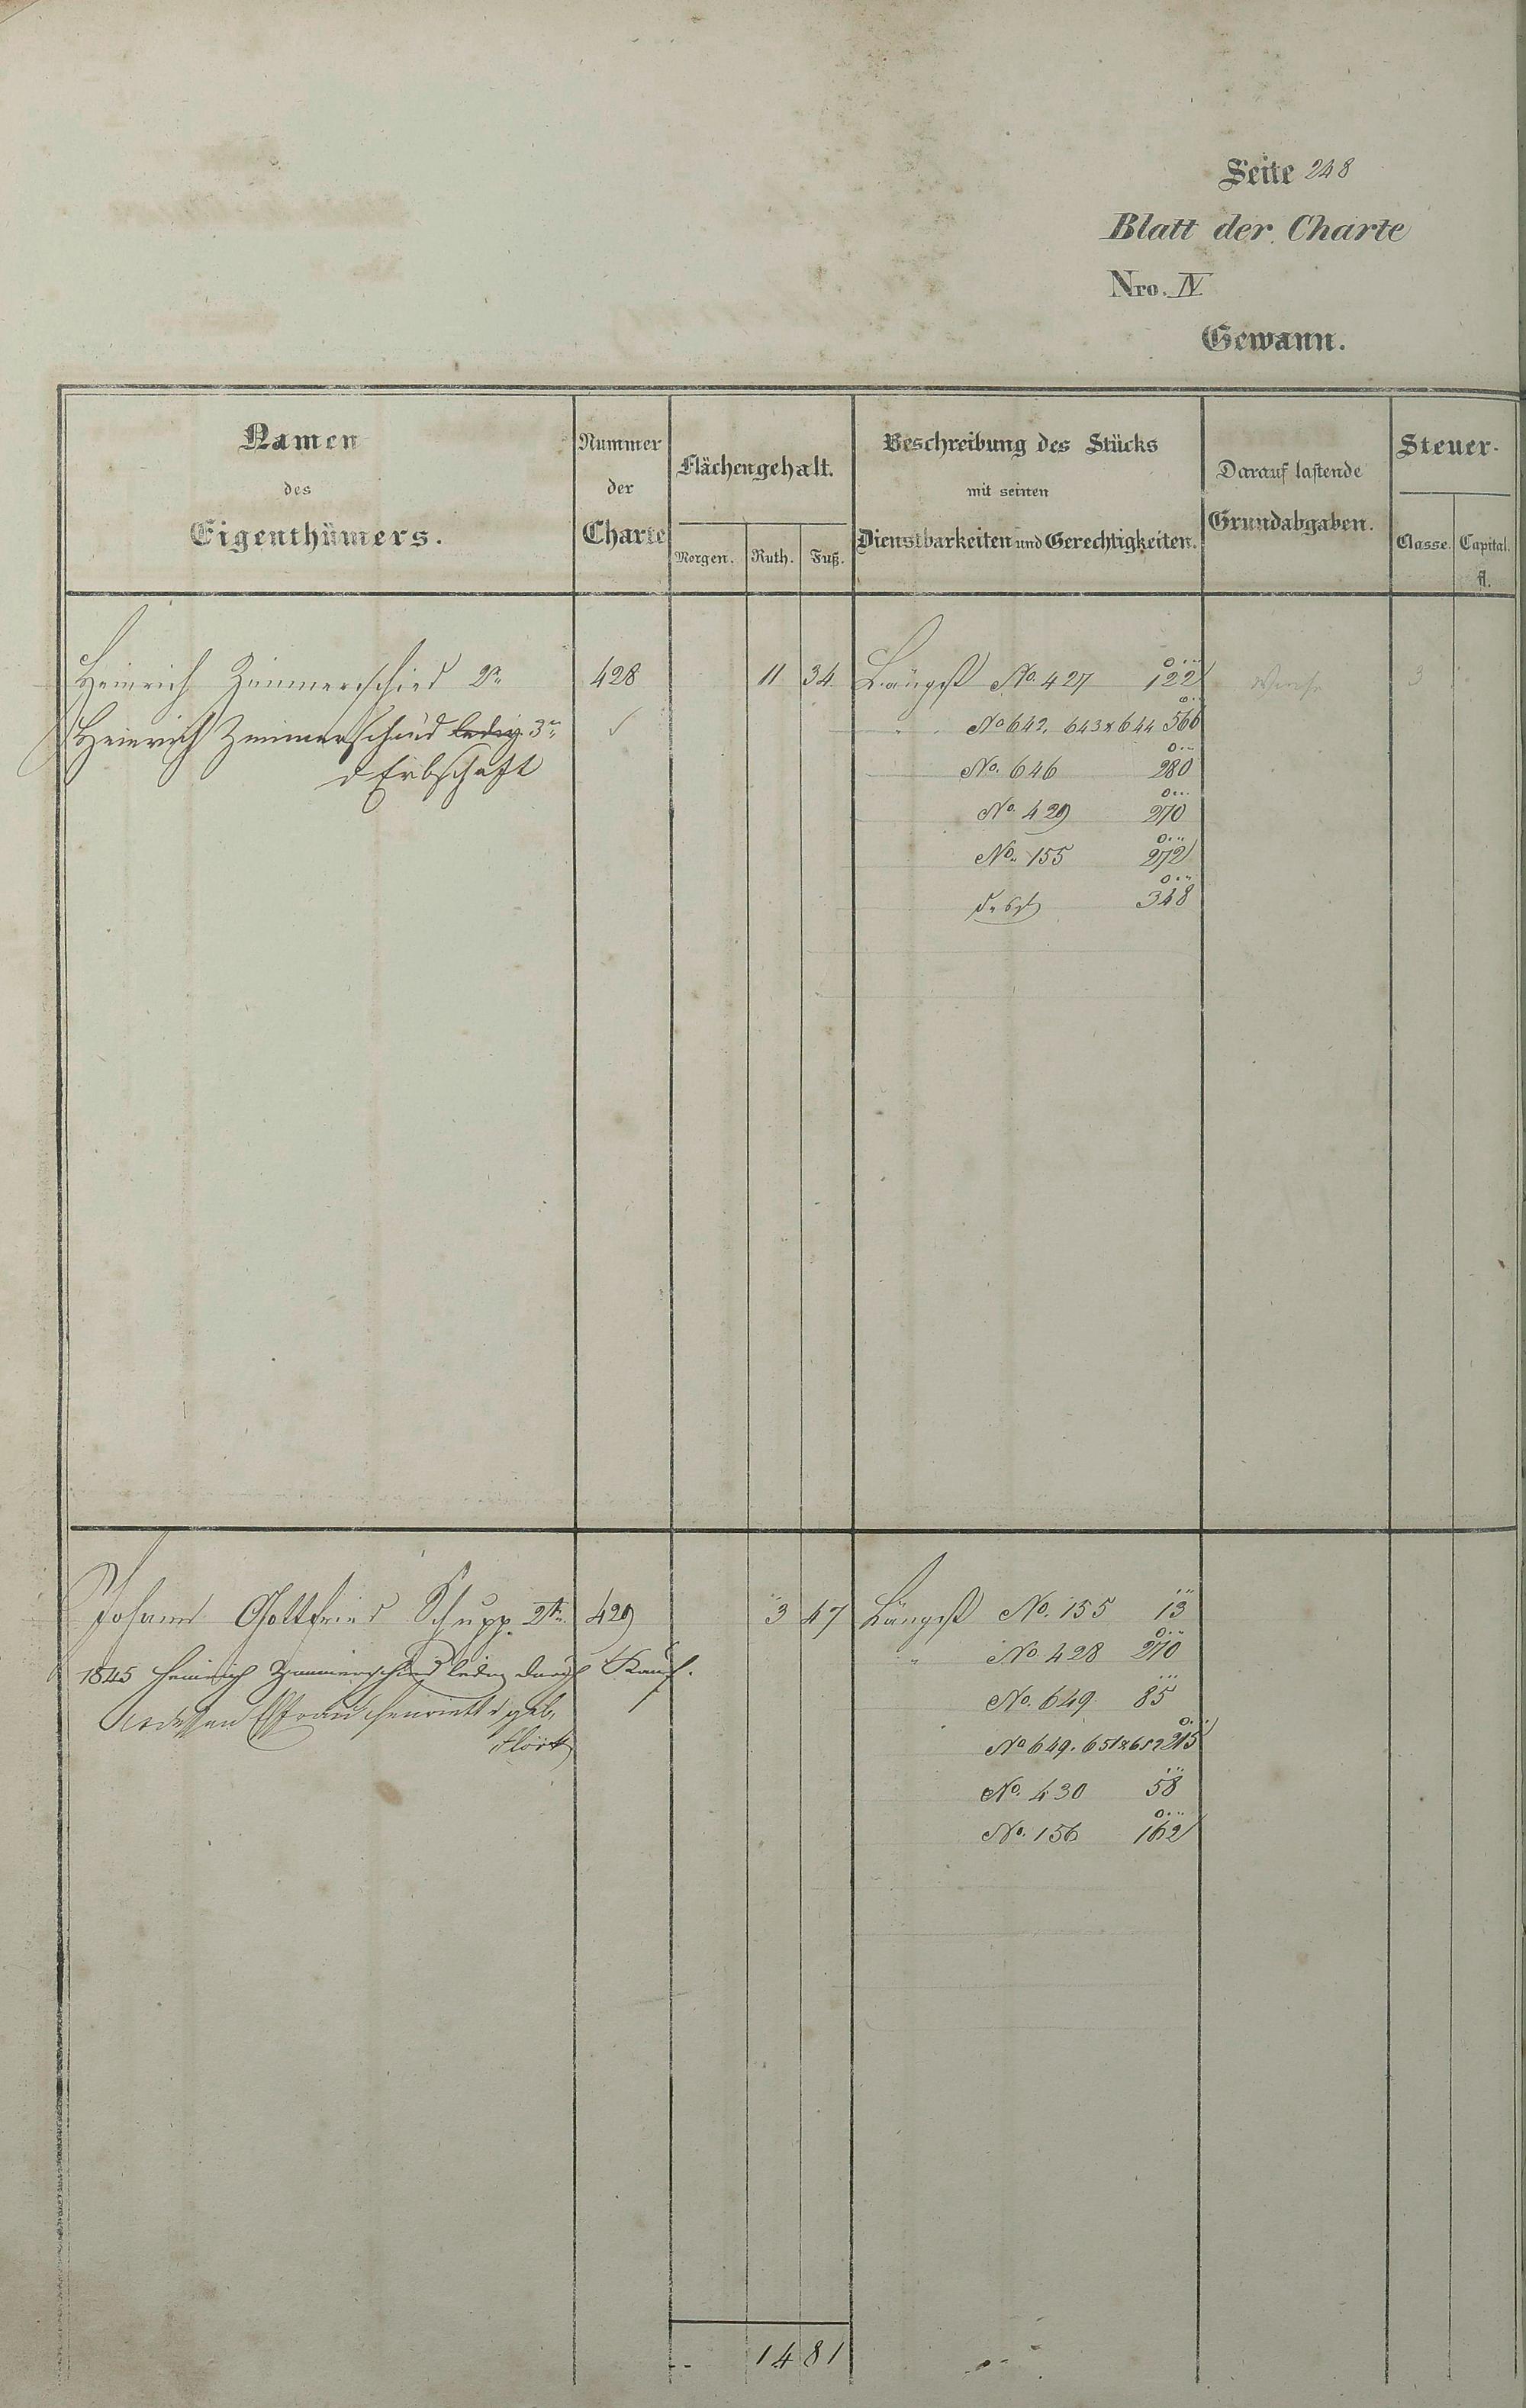 Seite 248
Blatt der Charte
Nro. IV
Gewann.
Namen des Eigenthümers.
Nummer der Charte
Flächengehalt.
Morgen. Ruth. Fuß.
Beschreibung des Stücks mit seinen Dienstbarkeiten und Gerechtigkeiten.
Darauf lastende Grundabgaben.
Steuer-
Classe. Capital. fl.
Heinrich Zimmerschied 2r 428 11 34 Längst No. 427 122 3
Heinrich Zimmerschied ledig 3r " No 642. 643 & 644 566
d Erbschaft No. 646 280
No. 429 270
No. 155 272
348
Johann Gottfried Schupp 2te 429 3 47 Längst No. 155 13
" No. 428 270
1845 Heinrich Zimmerschied ledig durch Kauf.
No. 649 85
dessen Ehefrau Henriette geb.
No 649. 651 & 652 215
No. 430 58
No. 156 162
14 81